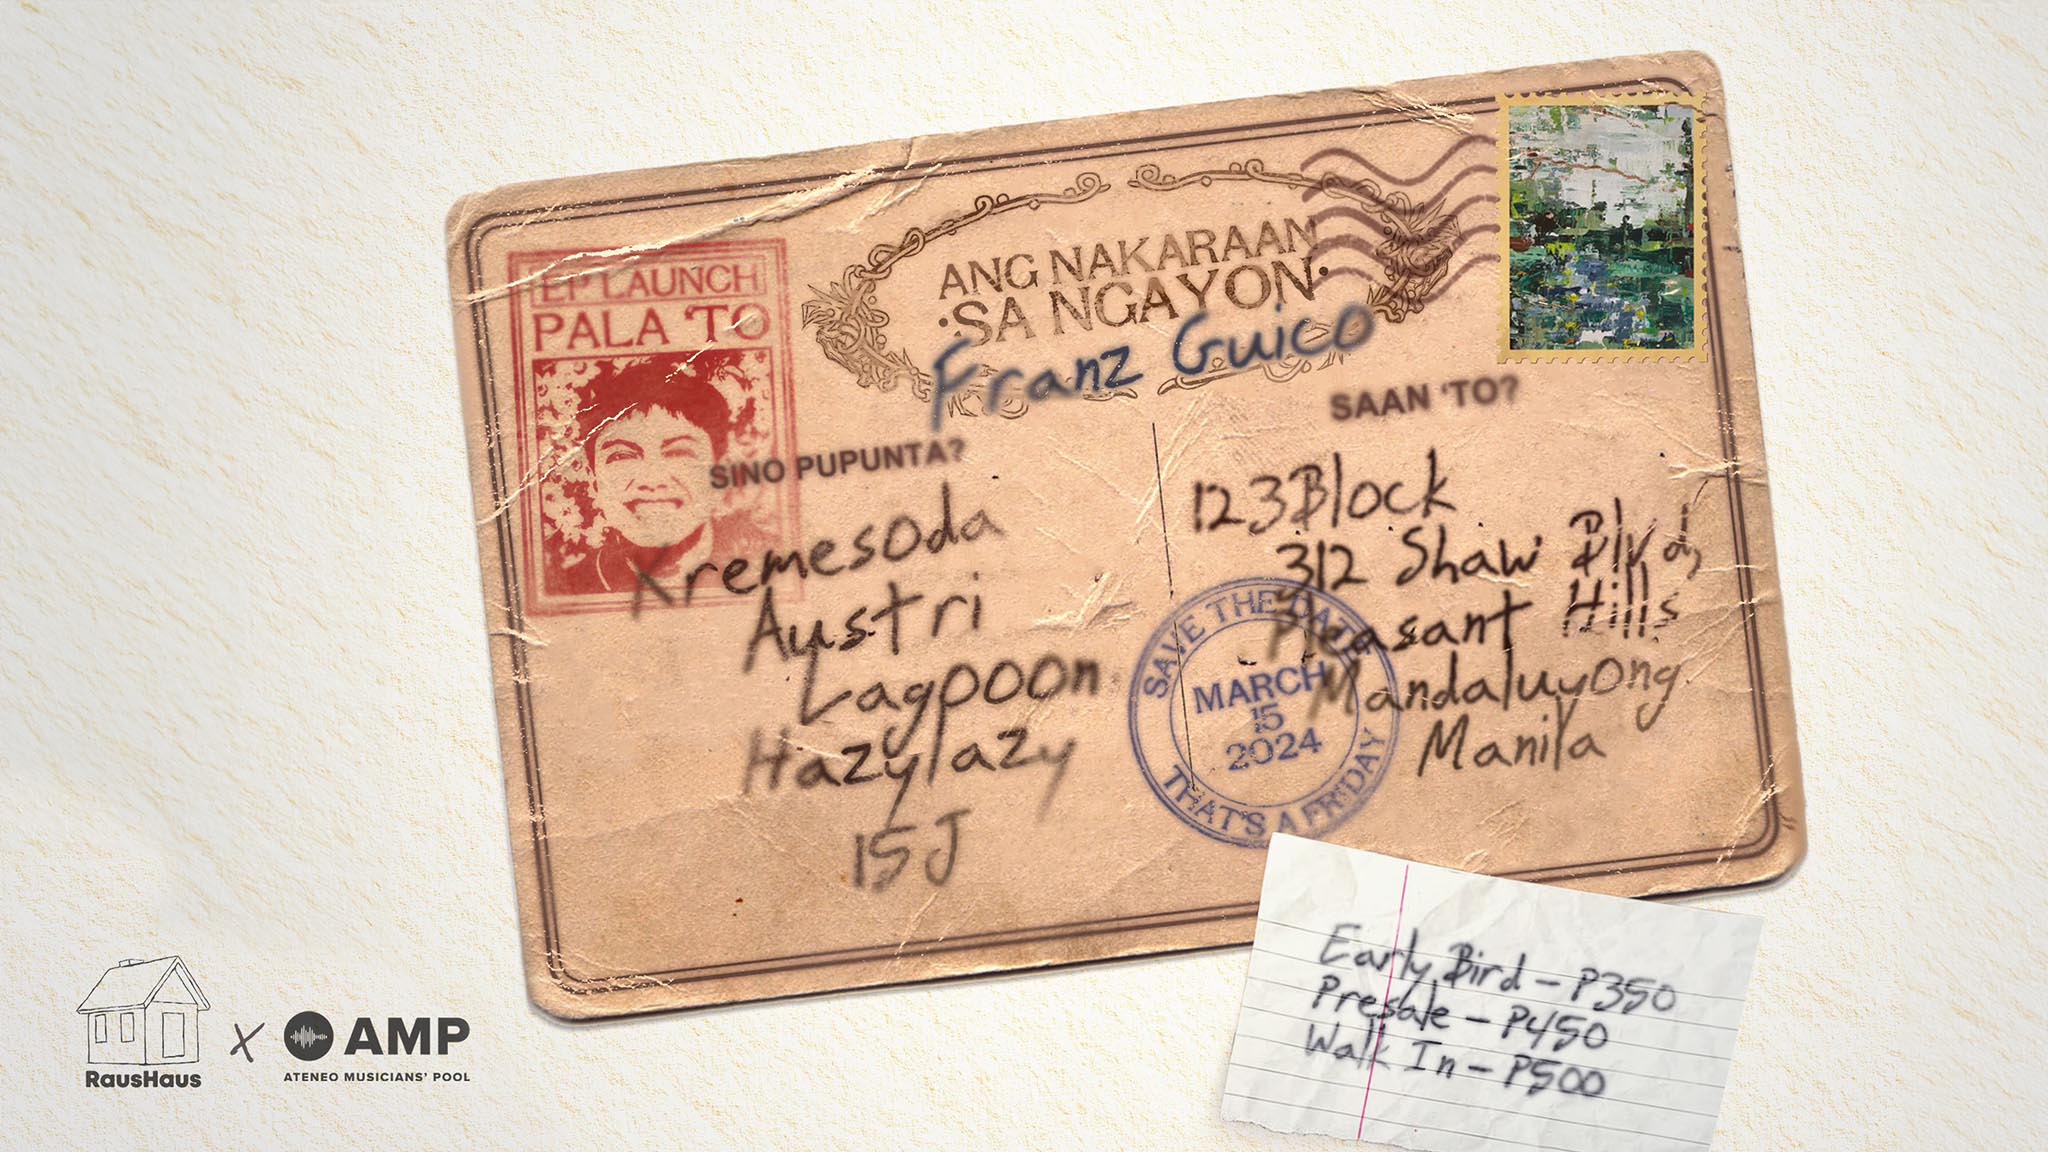 EP LAUNCH
PALA 'TO
ANG NAKARAAN
·SA NGAYON·
Franz Guico
SINO PUPUNTA?
Kremesoda
Austri
Lagpooon
Hazylazy
15J
SAAN 'TO?
123Block
312 Shaw Blvd,
Pleasant Hills
Mandaluyong
Manila
SAVE THE DATE
MARCH
15
2024
THAT'S A FRIDAY
Early Bird - P350
Presale - P450
Walk In - P500
RausHaus
X
AMP
ATENEO MUSICIANS' POOL